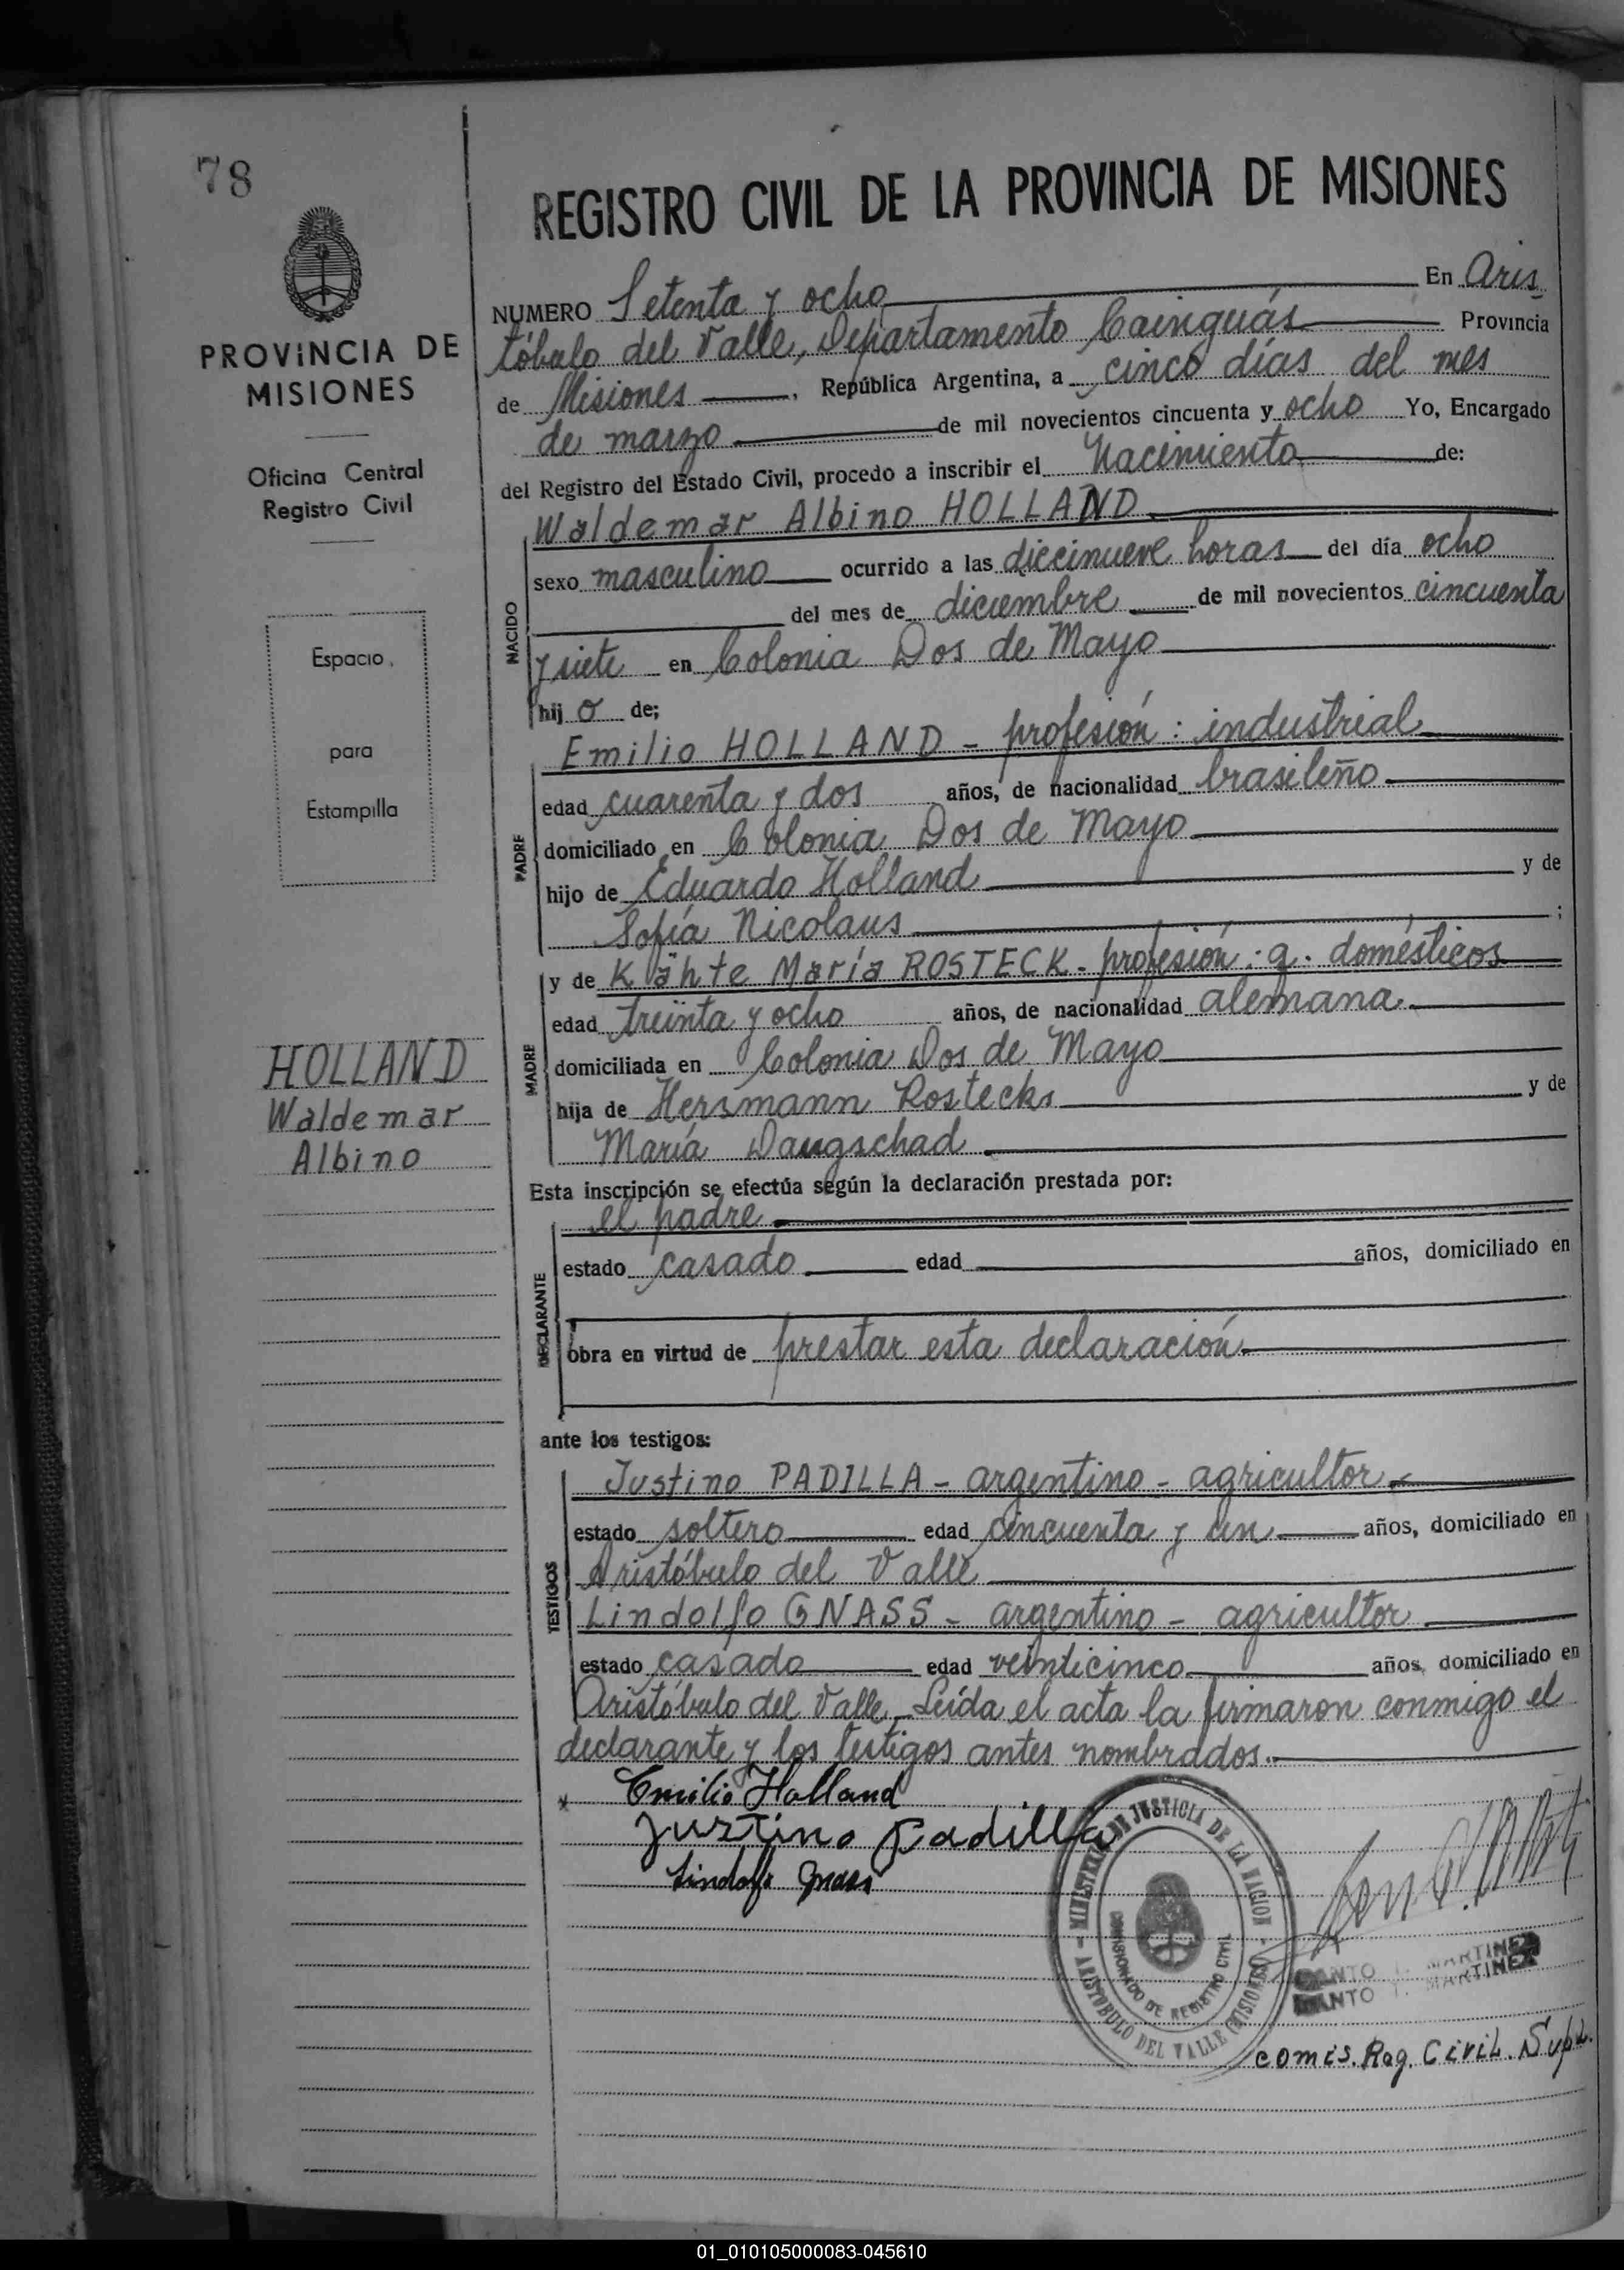 78
PROVINCIA DE
MISIONES
Oficina Central
Registro Civil
Espacio
para
Estampilla
HOLLAND
Waldemar
Albino
REGISTRO CIVIL DE LA PROVINCIA DE MISIONES
NUMERO Setenta y ocho En Aris
tóbulo del Valle, Departamento Cainguás Provincia
de Misiones, República Argentina, a cinco días del mes
de marzo de mil novecientos cincuenta y ocho Yo, Encargado
del Registro del Estado Civil, procedo a inscribir el Nacimiento de:
NACIDO
Waldemar Albino HOLLAND
sexo masculino ocurrido a las diecinueve horas del día ocho
del mes de diciembre de mil novecientos cincuenta
y siete en Colonia Dos de Mayo
hij o de;
PADRE
Emilio HOLLAND - profesión: industrial
edad cuarenta y dos años, de nacionalidad brasileño
domiciliado en Colonia Dos de Mayo
hijo de Eduardo Holland y de
Sofía Nicolaus ;
MADRE
y de Kähte María ROSTECK - profesión: q. domésticos
edad treinta y ocho años, de nacionalidad alemana
domiciliada en Colonia Dos de Mayo
hija de Hersmann Rosteck y de
María Daugschad
Esta inscripción se efectúa según la declaración prestada por:
DECLARANTE
el padre
estado casado edad años, domiciliado en
obra en virtud de prestar esta declaración
ante los testigos:
TESTIGOS
Justino PADILLA - argentino - agricultor
estado soltero edad cincuenta y un años, domiciliado en
Aristóbulo del Valle
Lindolfo GNASS - argentino - agricultor
estado casado edad veinticinco años, domiciliado en
Aristóbulo del Valle. Leída el acta la firmaron conmigo el
declarante y los testigos antes nombrados.
Emilio Holland
Justino Padilla
Lindolfo Gnass
MINISTERIO DE JUSTICIA DE LA NACION
COMISIONADO DE REGISTRO CIVIL
ARISTOBULO DEL VALLE (MISIONES)
SANTO T. MARTINEZ
SANTO T. MARTINEZ
Comis. Reg. Civil. Supl.
01_010105000083-045610